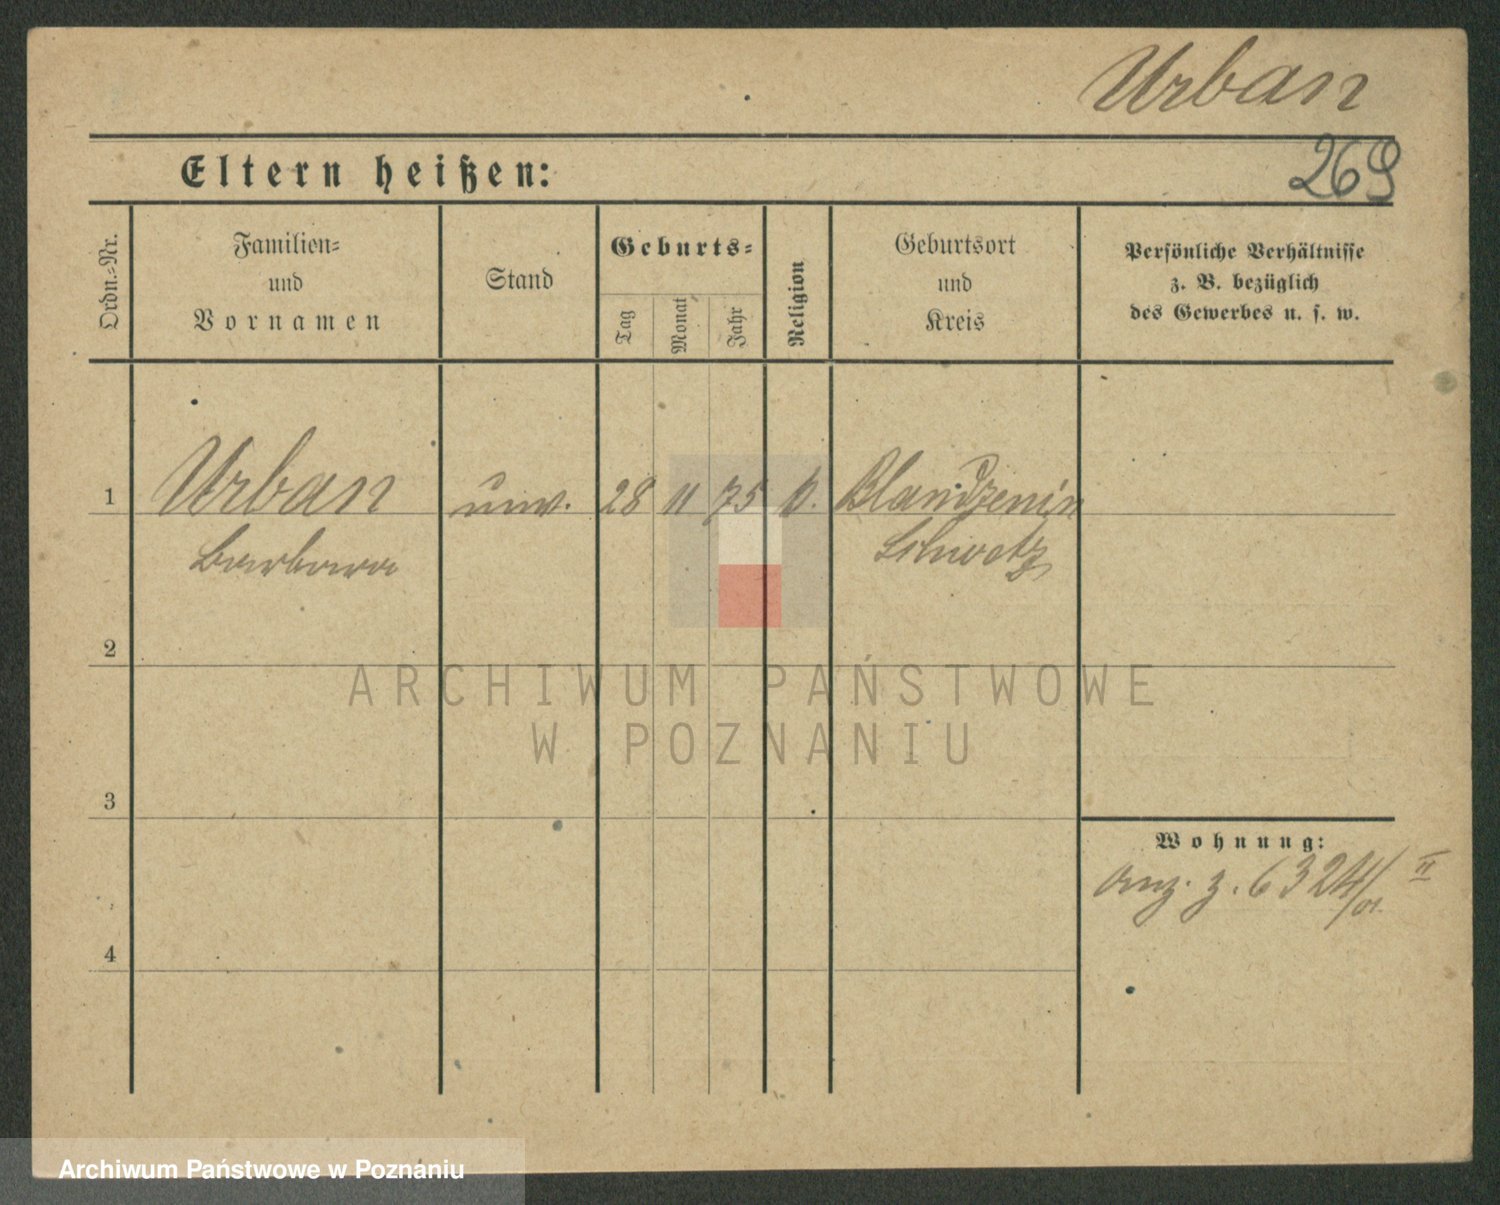 Urban
269
Eltern heißen:
Ordn.-Nr.
Familien-
und
Vornamen
Stand
Geburts-
Tag
Monat
Jahr
Religion
Geburtsort
und
Kreis
Persönliche Verhältnisse
z. B. bezüglich
des Gewerbes u. s. w.
1
Urban
Barbara
unv.
28
11
75
Schwetz
2
3
4
Wohnung:
II
ARCHIWUM PAŃSTWOWE
W POZNANIU
Archiwum Państwowe w Poznaniu